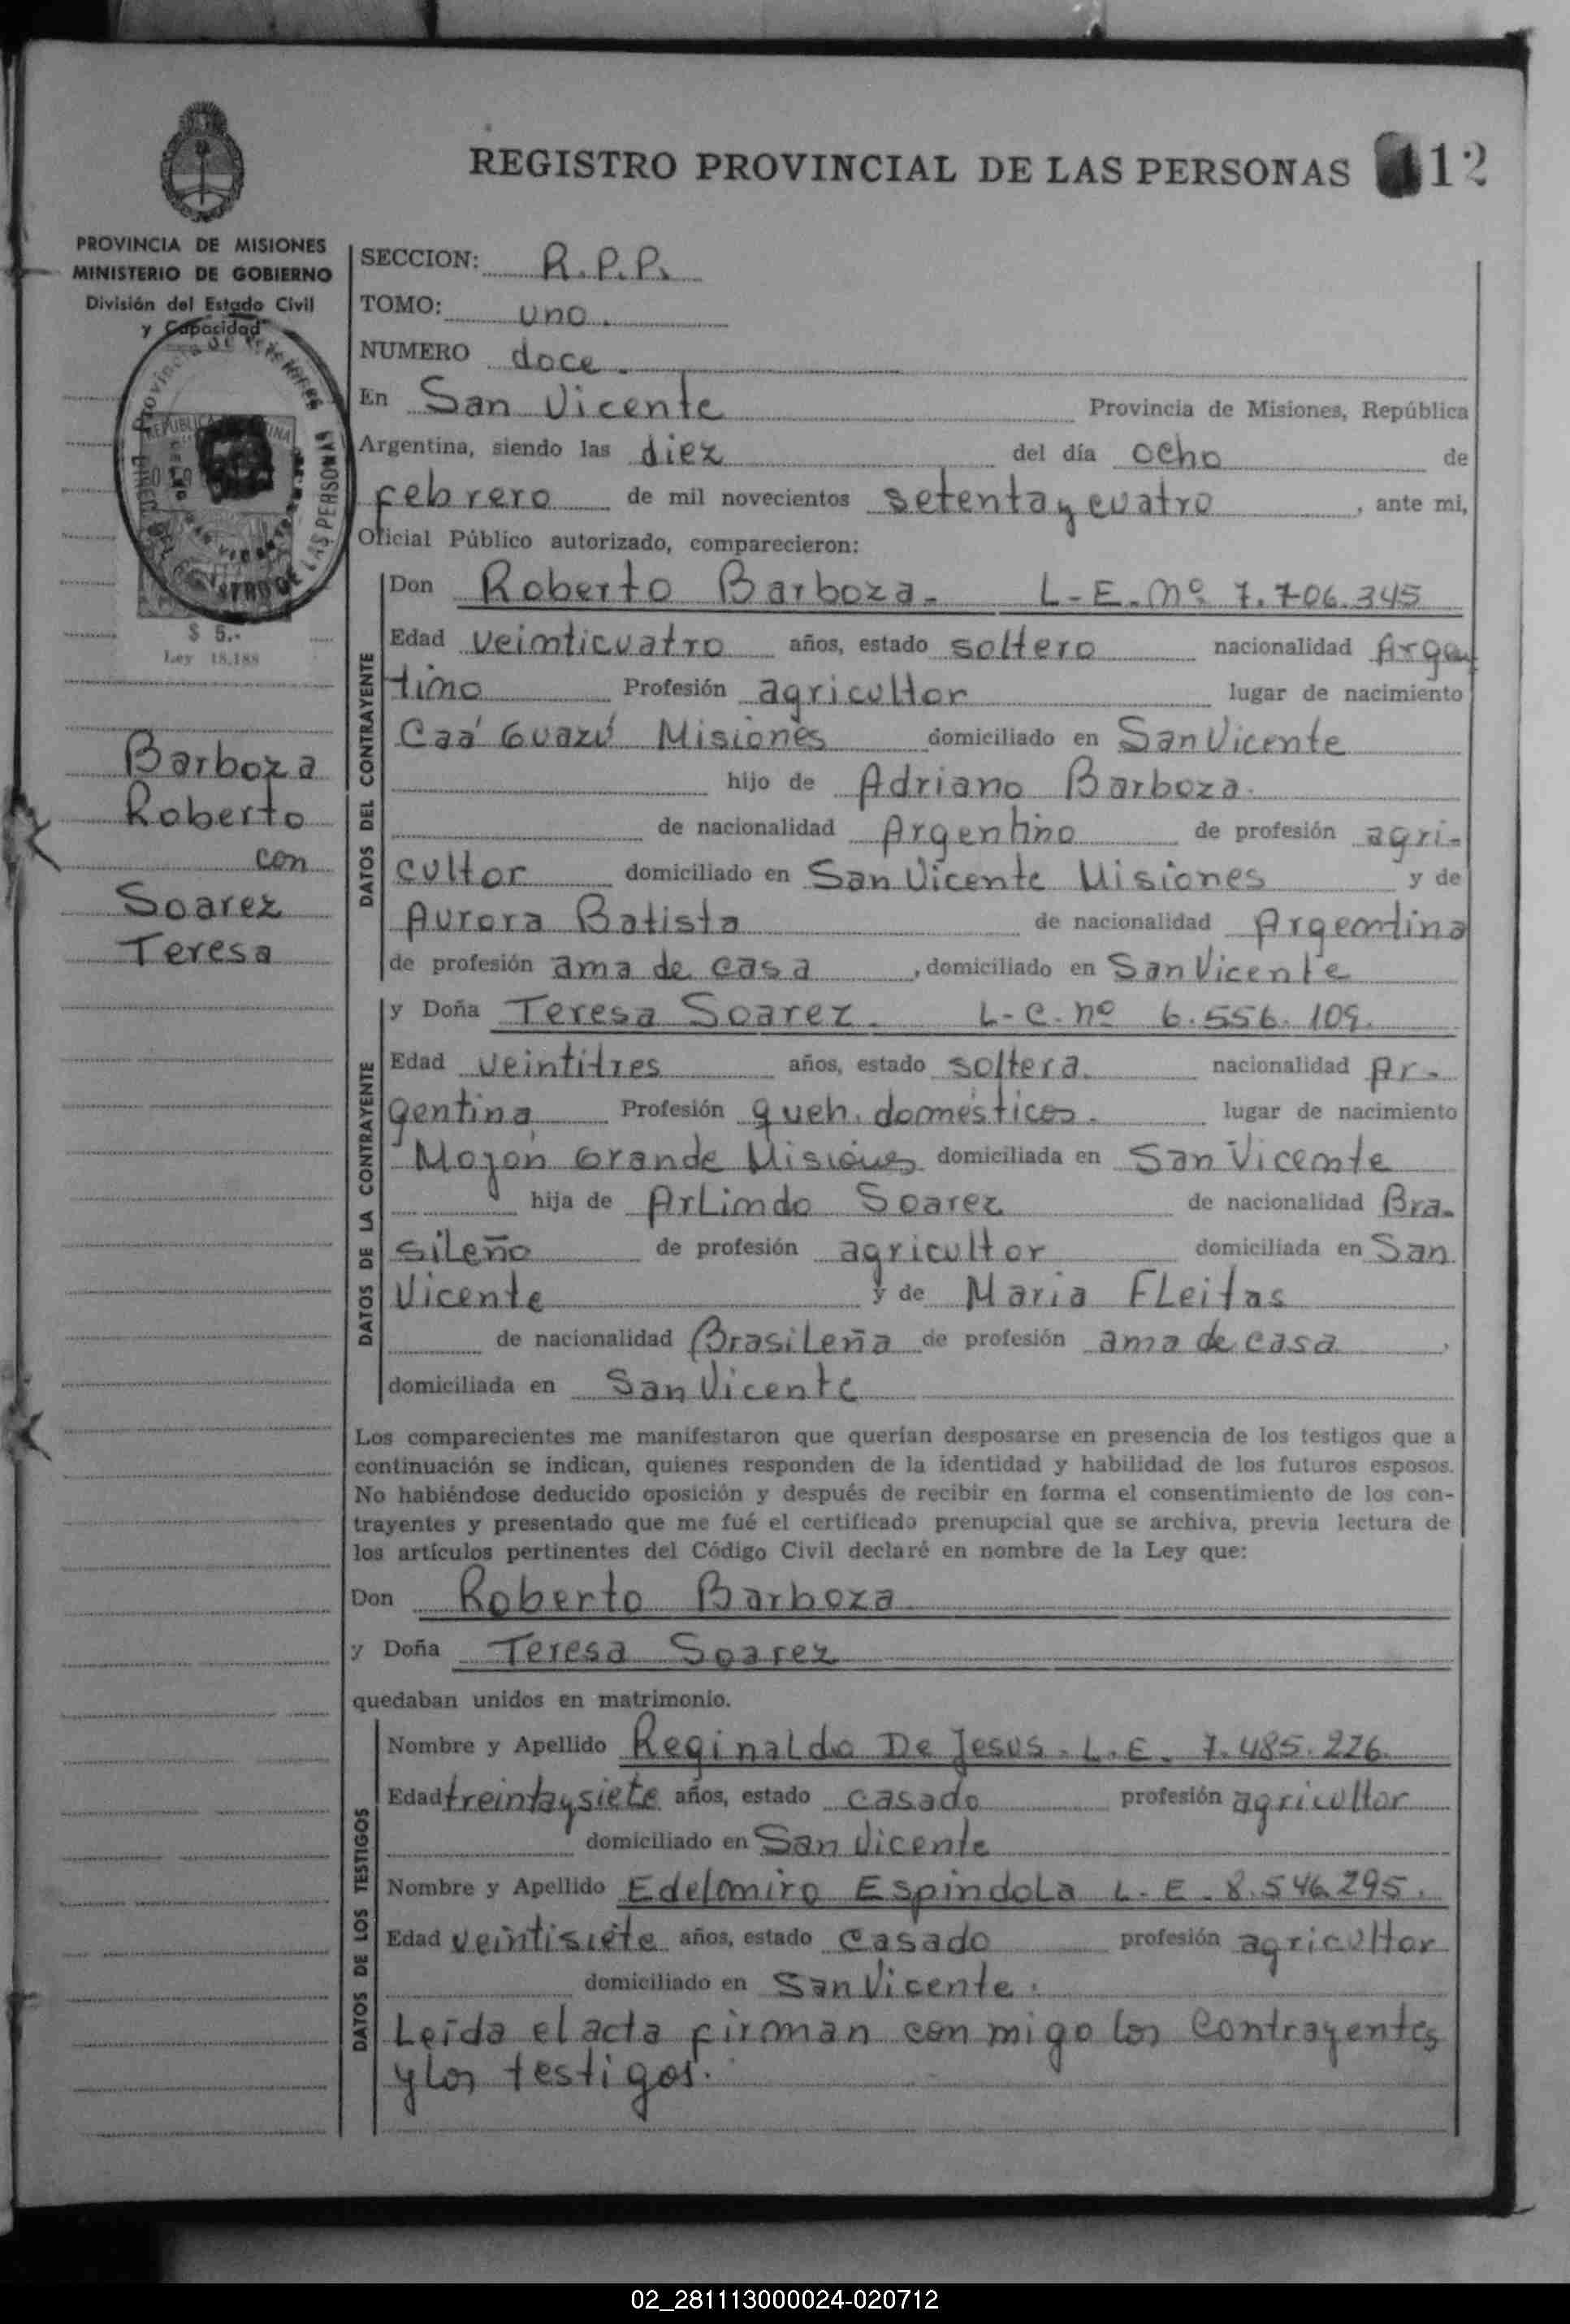 REGISTRO PROVINCIAL DE LAS PERSONAS 12
PROVINCIA DE MISIONES
MINISTERIO DE GOBIERNO
División del Estado Civil
y Capacidad
$ 5.-
Ley 18.188
Barboza
Roberto
con
Soarez
Teresa
SECCION: R.P.P.
TOMO: uno.
NUMERO doce.
En San Vicente Provincia de Misiones, República
Argentina, siendo las diez del día ocho de
febrero de mil novecientos setenta y cuatro, ante mi,
Oficial Público autorizado, comparecieron:
DATOS DEL CONTRAYENTE
Don Roberto Barboza- L-E-Nº 7.706.345
Edad veinticuatro años, estado soltero nacionalidad Argen
tino Profesión agricultor lugar de nacimiento
Caá Guazú Misiones domiciliado en San Vicente
hijo de Adriano Barboza.
de nacionalidad Argentino de profesión agri-
cultor domiciliado en San Vicente Misiones y de
Aurora Batista de nacionalidad Argentina
de profesión ama de casa, domiciliado en San Vicente
DATOS DE LA CONTRAYENTE
y Doña Teresa Soarez. L-C-nº 6.556.109.
Edad veintitres años, estado soltera. nacionalidad Ar-
gentina Profesión queh. domésticos. lugar de nacimiento
Mojón Grande Misiones domiciliada en San Vicente
hija de Arlindo Soarez de nacionalidad Bra-
sileño de profesión agricultor domiciliada en San
Vicente y de Maria Fleitas
de nacionalidad Brasileña de profesión ama de casa,
domiciliada en San Vicente
Los comparecientes me manifestaron que querían desposarse en presencia de los testigos que a
continuación se indican, quienes responden de la identidad y habilidad de los futuros esposos.
No habiéndose deducido oposición y después de recibir en forma el consentimiento de los con-
trayentes y presentado que me fué el certificado prenupcial que se archiva, previa lectura de
los artículos pertinentes del Código Civil declaré en nombre de la Ley que:
Don Roberto Barboza
y Doña Teresa Soarez
quedaban unidos en matrimonio.
DATOS DE LOS TESTIGOS
Nombre y Apellido Reginaldo De Jesus. L.E. 7.485.226.
Edad treinta y siete años, estado casado profesión agricultor
domiciliado en San Vicente
Nombre y Apellido Edelmiro Espindola L-E-8.546.295.
Edad veintisiete años, estado casado profesión agricultor
domiciliado en San Vicente.
Leída el acta firman con migo los contrayentes
y los testigos.
02_281113000024-020712